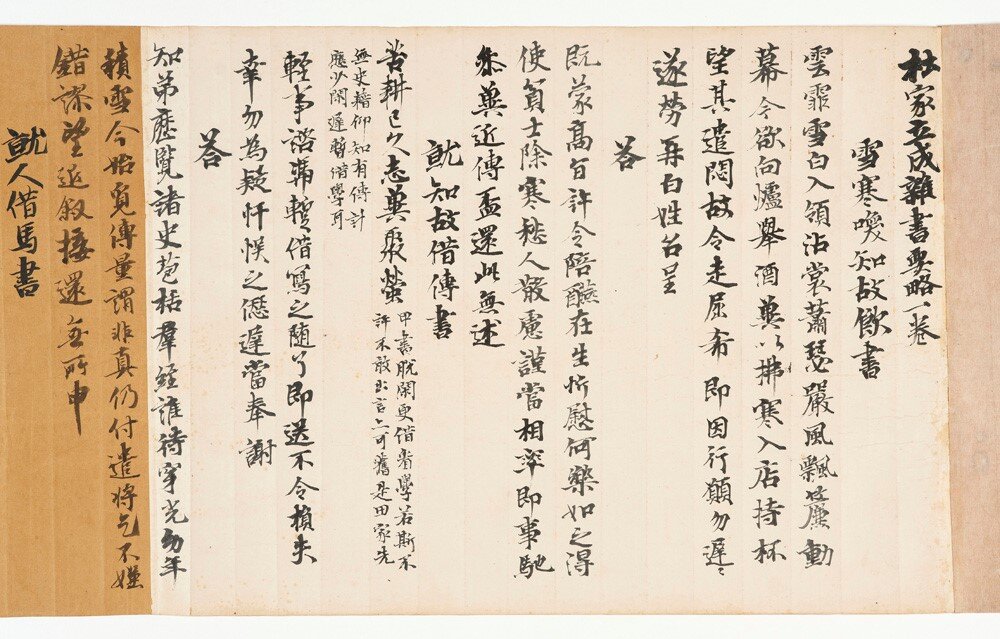 杜家立成雜書要略一卷
雪寒喚知故飲書
雲霏雪白入領沾裳蕭瑟嚴風飄簾動
幕今欲向爐舉酒冀以拂寒入店持杯
望其遣悶故令走屈希即因行願勿遲〻
遂勞再白姓名呈
答
既蒙高旨許令陪醼在生忻慰何樂如之得
使貧士除寒愁人散慮謹當相率即事馳
參冀近傳盃還此無述
就知故借傳書
苦耕已久志冀聚螢
甲書脫閑更借省學若斯不
許不敢出言亦可舊是田家先
無史籍仰知有傳計
應少閑遲暫借學耳
輕事諮稀暫借寫之隨了即送不令損失
幸勿為疑忏悮之僁遲當奉謝
答
知弟歷覽諸史苞括羣經誰待穿光勿年
積雪今始覓傳量謂非真仍付遣將乞不嫌
錯謬望近叙接還無所申
就人借馬書